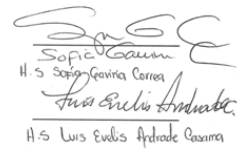 Sofia Gaviria
H.S Sofia Gaviria Correa
Luis Evelis Andrade C.
H.S Luis Evelis Andrade Casama